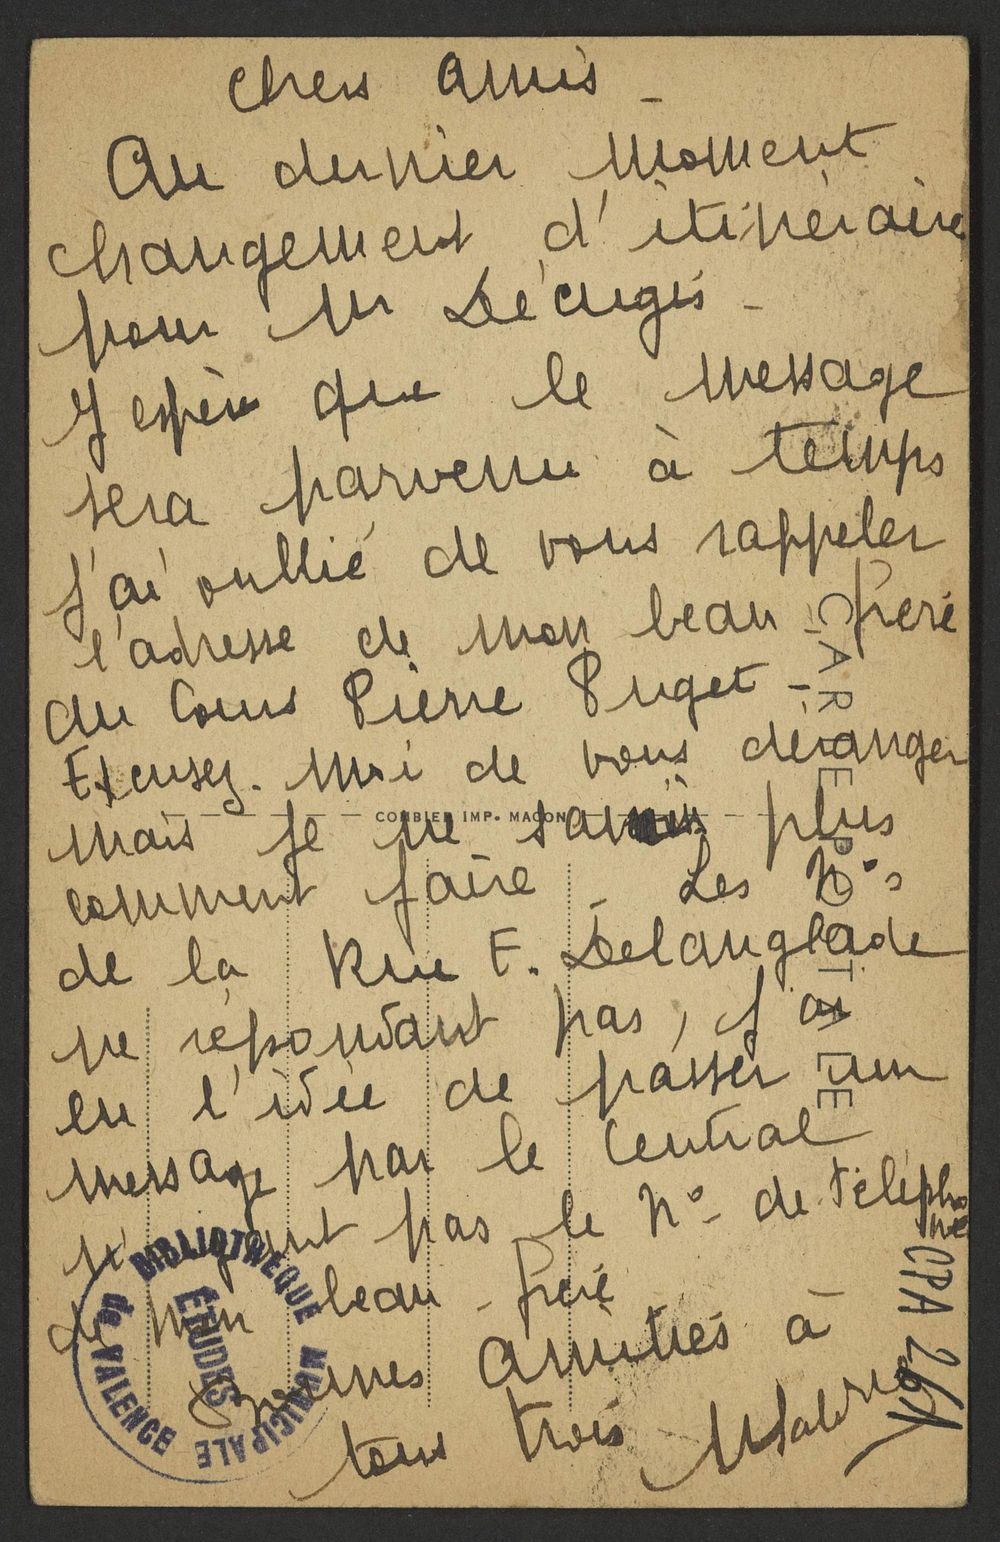 Chers Amis -
Au dernier moment
changement d'itinéraire
pour Mr Décugis -
J'espère que le message
sera parvenu à temps
J'ai oublié de vous rappeler
l'adresse de mon beau frère
du Cours Pierre Puget -
Excusez-moi de vous déranger
mais je ne savais plus
comment faire - Les Nos
de la Rue F. Delanglade
ne répondant pas, j'ai
eu l'idée de passer un
message par le Central
n'ayant pas le No de téléphone
de mon beau-frère
Bonnes Amitiés à
tous trois
CARTE POSTALE
COMBIER IMP. MACON
BIBLIOTHÈQUE MUNICIPALE de VALENCE
ÉTUDES
CPA 261